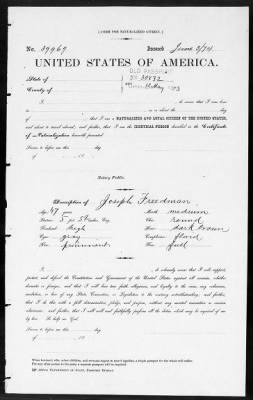 [FORM FOR NATURALIZED CITIZEN.]
No. 39969 Issued June 2/74
UNITED STATES OF AMERICA.
OLD PASSPORT
State of
County of
I, do swear that I was born
in on or about the day
of ; that I am a NATURALIZED AND LOYAL CITIZEN OF THE UNITED STATES,
and about to travel abroad; and further, that I am the IDENTICAL PERSON described in the Certificate
of Naturalization herewith presented.
Sworn to before me, this day
of , 18
Notary Public.
Description of Joseph Freedman
Age: 47 years Mouth: medium
Stature: 5 feet 5 inches, Eng. Chin: round
Forehead: high Hair: dark brown
Eyes: gray Complexion: florid
Nose: prominent Face: full
I, do solemnly swear that I will support,
protect, and defend the Constitution and Government of the United States against all enemies, whether
domestic or foreign; and that I will bear true faith, allegiance, and loyalty to the same, any ordinance,
resolution, or law of any State, Convention, or Legislature to the contrary notwithstanding; and further,
that I do this with a full determination, pledge, and purpose, without any mental reservation or evasion
whatsoever; and further, that I will well and faithfully perform all the duties which may be required of me
by law: So help me God.
Sworn to before me, this day
of , 18